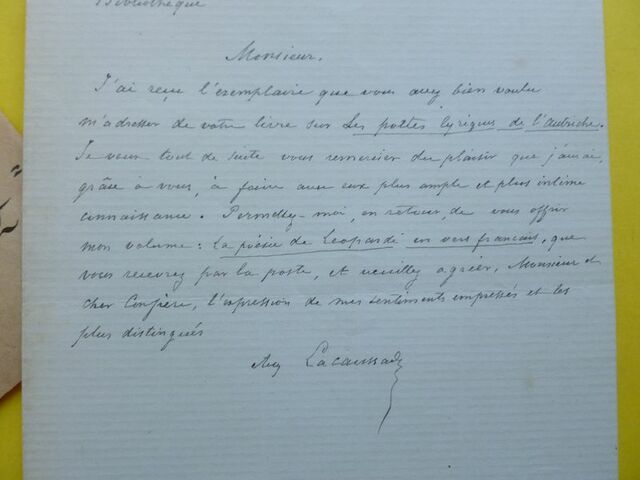 Bibliothèque
Monsieur,
J'ai reçu l'exemplaire que vous avez bien voulu
m'adresser de votre livre sur Les poëtes lyriques de l'Autriche.
Je veux tout de suite vous remercier du plaisir que j'aurai,
grâce à vous, à faire avec eux plus ample et plus intime
connaissance. Permettez-moi, en retour, de vous offrir
mon volume : La poésie de Leopardi en vers français, que
vous recevrez par la poste, et veuillez agréer, Monsieur et
cher Confrère, l'expression de mes sentiments empressés et les
plus distingués
Aug Lacaussade